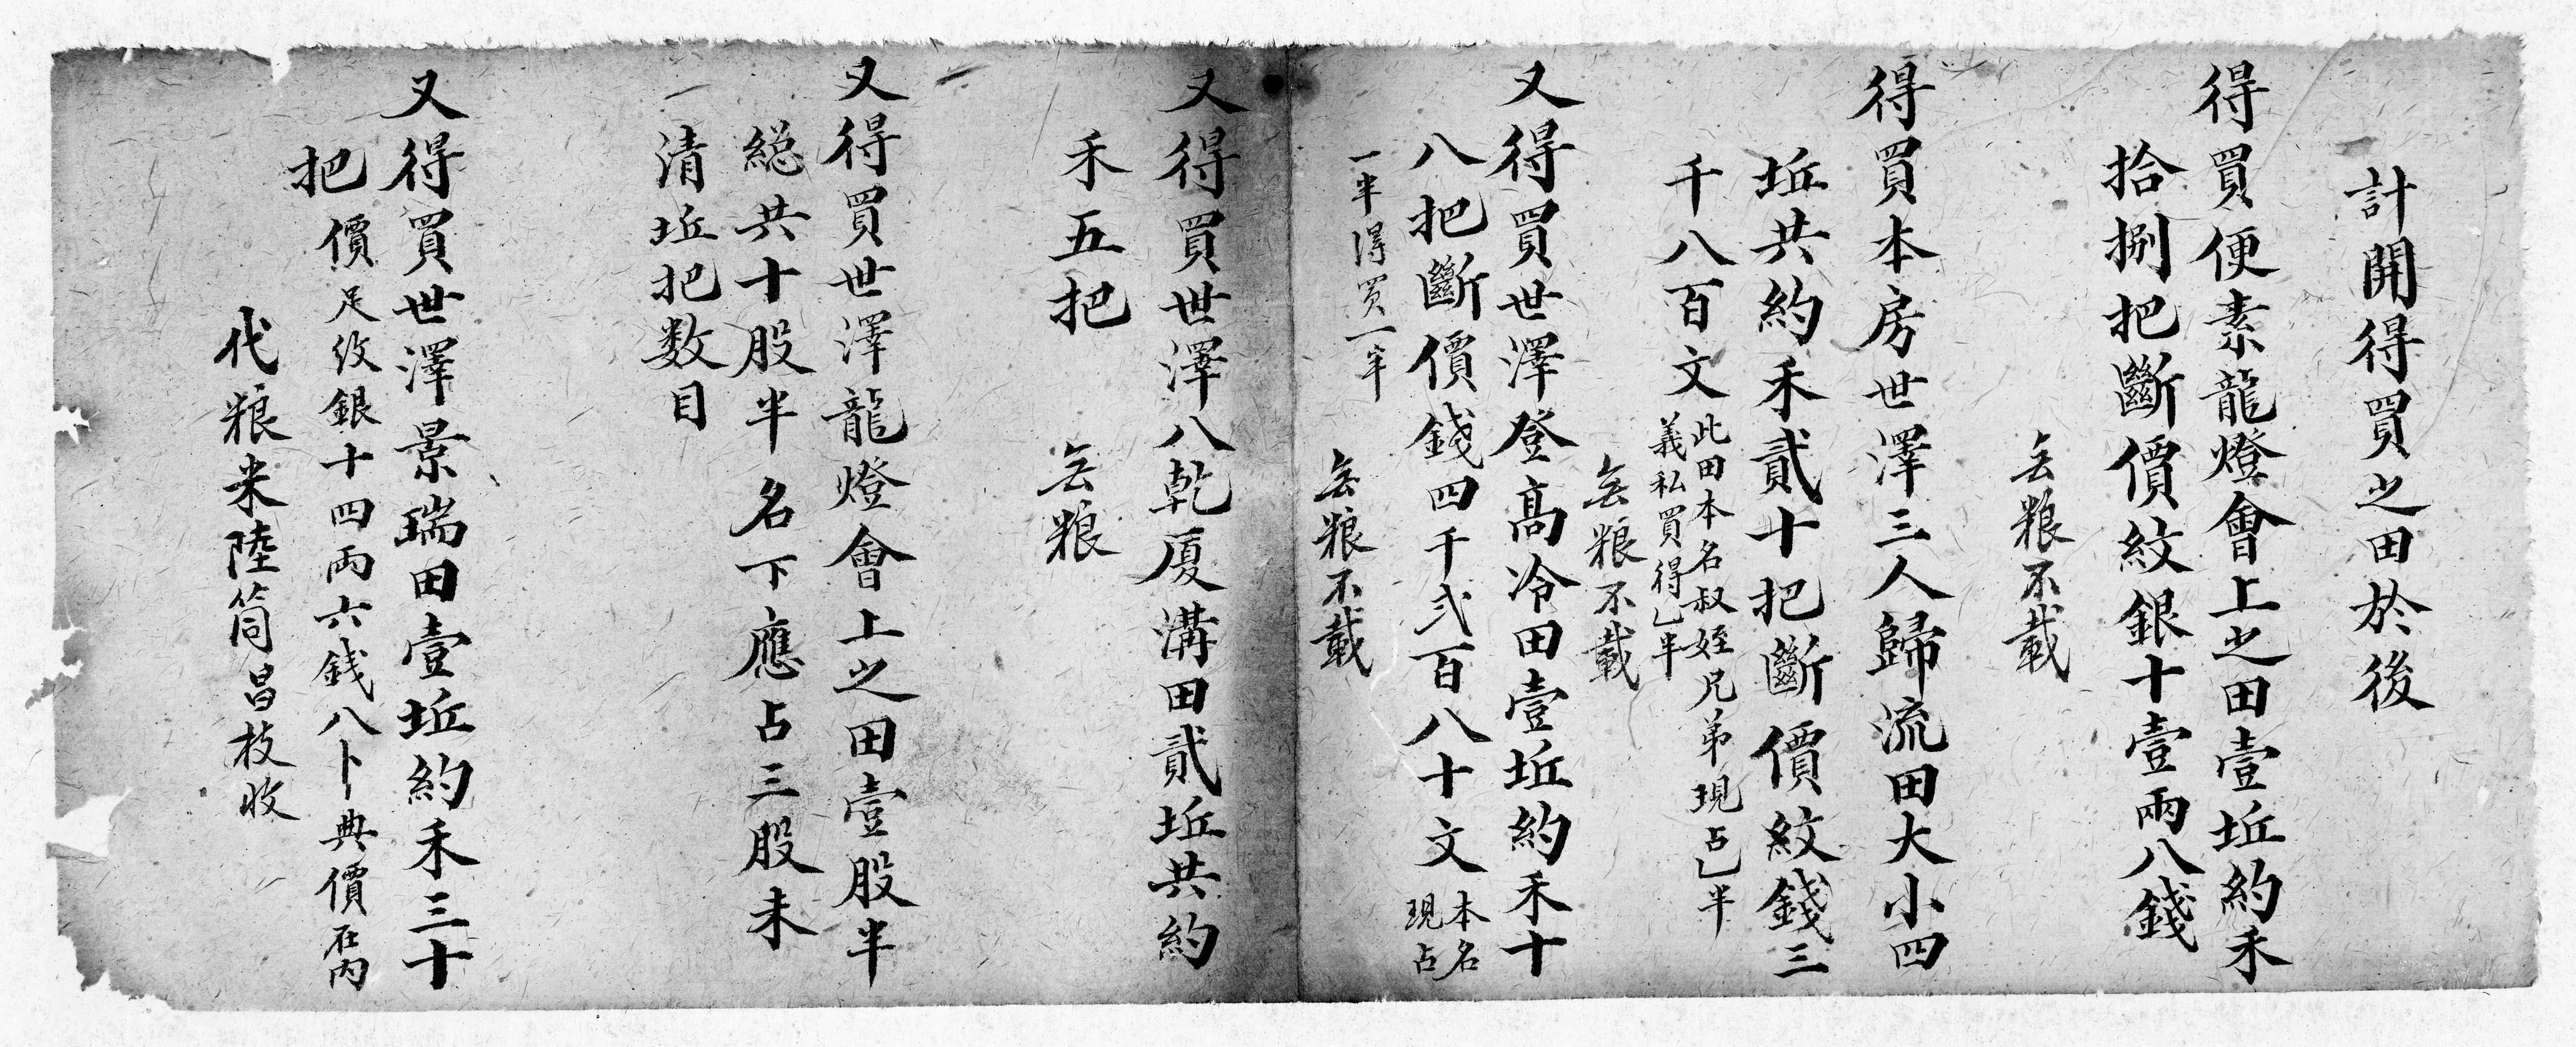 計開得買之田於後
得買便素龍燈會上之田壹坵約禾
拾捌把斷價紋銀十壹兩八錢
无粮不載
得買本房世澤三人歸流田大小四
坵共約禾貳十把斷價紋錢三
千八百文
此田本名叔姪兄弟現占乚半
義私買得乚半
无粮不載
又得買世澤登高冷田壹坵約禾十
八把斷價錢四千弍百八十文
本名
現占
一半得買一半
无粮不載
又得買世澤八乾厦溝田貳坵共約
禾五把
无粮
又得買世澤龍燈會上之田壹股半
総共十股半名下應占三股未
清坵把数目
又得買世澤景瑞田壹坵約禾三十
把價足紋銀十四兩六錢八卜典價在内
代粮米陸筒昌枝收